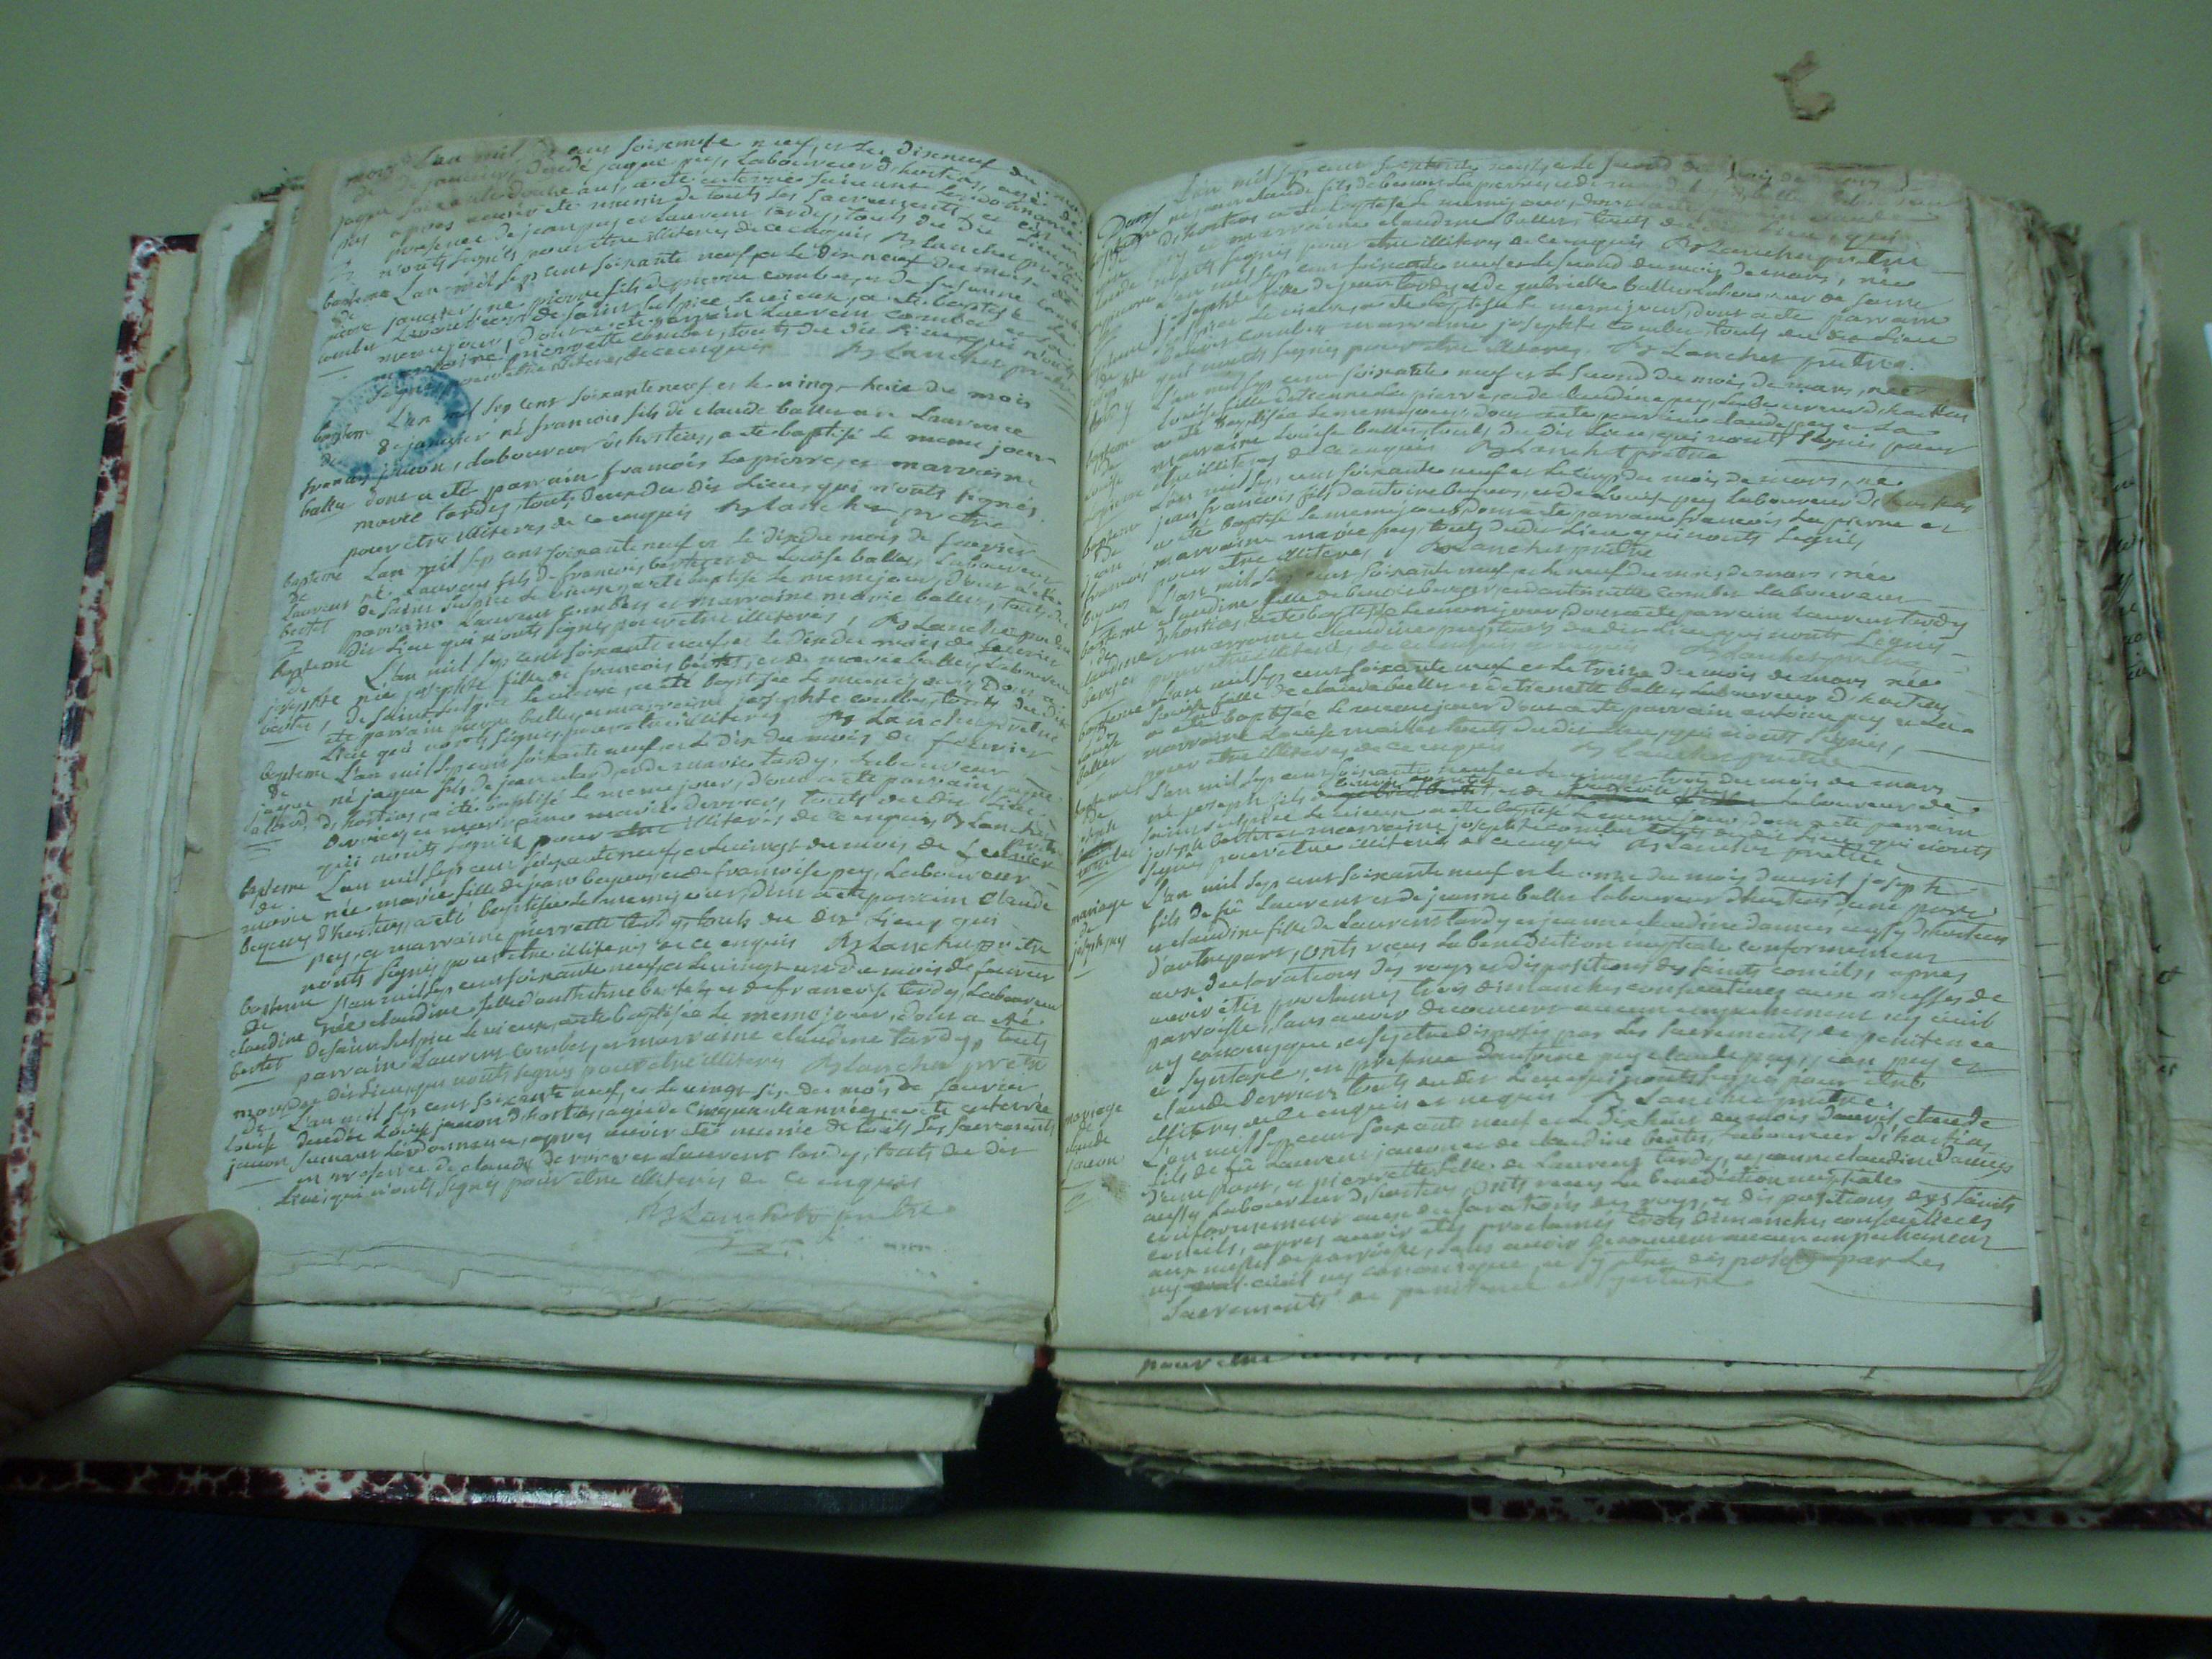 L'an mil sept cens soisemte neuf, et le diseneuf du
de janvier, décédé jaque pey, laboureur d'hortias, agé de
soixante douze ans, a eté enterré suivant l'ordonnance
apres avoir eté munis de touts les sacrements et ce en
presence de jean pey et Laurent tardy, touts du dit lieu qui
n'onts signés pour etre illiteres de ce enquis Rj Lanchet pretre
L'an mil sept cent soixante neuf et le dix neuf du mois de
janvier, né pierre fils de pierre combet, et de susanne
Laboureurs de saint sulpice le vieux, a eté baptisé le
meme jour, dont a eté parrain Laurent combet et la
marraine pierrette combet, touts du dit lieu qui n'onts
signés pour etre illiteres de ce enquis Rj Lanchet pretre
bapteme L'an mil sept cent soixante neuf et le vingt huit du mois
de de janvier né françois fils de claude ballu et Laurence
françois jamon, Laboureur d'hortias, a eté baptisé le meme jour
ballu dont a eté parrain francois Lapierre, et marraine
marie tardy, touts deux du dit Lieu, qui n'onts signés
pour etre illiteres de ce enquis Rj Lanchet pretre
bapteme L'an mil sept cent soixante neuf et le dix du mois de fevrier
de né Laurens fils de francois bertet et de Louise ballu, Laboureur
Laurens de saint sulpice le vieux, a eté baptisé le meme jour, dont a eté
bertet parrain Laurent combet et marraine marie ballu, touts du
dit Lieu qui n'onts signés pour etre illiteres, Rj Lanchet pretre
bapteme L'an mil sept cent soixante neuf et le dix du mois de fevrier
de née josephte fille de francois bertet, et de marie ballu, Laboureur
josephte de saint sulpice le vieux, a eté baptisée le meme jour Dont a
bertet eté parrain pierre ballu, et marraine josephte combet, touts du dit
Lieu qui n'onts signés pour etre illiteres Rj Lanchet pretre
bapteme L'an mil sept cent soixante neuf et le dix du mois de fevrier
de né jaque fils de jean alard, et de marie tardy, Laboureur
jaque d'hortias, a eté baptisé le meme jour, dont a eté parrain jaque
alard dervieu, et marraine marie dervieu, touts du dit Lieu
qui n'onts signés pour etre illiteres de ce enquis, Rj Lanchet pretre
bapteme L'an mil sept cent soixante neuf, et le vingt du mois de fevrier
de née marie fille de jean beyeus, et de francoise pey, Laboureur
marie d'hortias, a eté baptisée le meme jour, dont a eté parrain claude
beyeus pey, et marraine pierrette tardy, touts du dit Lieu, qui
n'onts signés pour etre illiteres de ce enquis Rj Lanchet pretre
bapteme L'an mil sept cent soixante neuf, et le vingt un du mois de fevrier
de née claudine fille d'anthelme bertet, et de francoise tardy, Laboureur
claudine de saint sulpice le vieux, a eté baptisée le meme jour, dont a eté
bertet parrain Laurent combet, et marraine claudine tardy, touts
du dit Lieu, qui n'onts signés pour etre illiteres Rj Lanchet pretre
mors L'an mil sept cent soixante neuf, et le vingt six du mois de fevrier
de decedée Louise jamon d'hortias, agée de cinquante années, a eté enterrée
Louise suivant L'ordonnance, apres avoir eté munie de touts les sacrements
jamon en presence de claude dervieu et Laurent tardy, touts du dit
Lieu, qui n'onts signés pour etre illiteres de ce enquis
Rj Lanchet pretre
L'an mil sept cent soixante neuf, et le second du mois de mars
né jean claude fils de benoit Lapierre, et de
d'hortias a eté baptisé le meme jour, dont a eté parrain
et marraine claudine ballu touts du dit Lieu, qui
n'onts signés pour etre illiteres de ce enquis Rj Lanchet pretre
L'an mil sept cent soixante neuf et le second du mois de mars, née
josephte fille de jean tardy, et de gabrielle ballu Laboureur de saint
sulpice le vieux, a eté baptisée le meme jour, dont a eté parrain
combet marraine josephte combet, touts du dit Lieu
qui n'onts signés pour etre illiteres. Rj Lanchet pretre.
L'an mil sept cent soixante neuf et le second du mois de mars, née
Louise fille d'etienne Lapierre, et de claudine pey, Laboureur d'hortias
a eté baptisée le meme jour, dont a eté parrain claude pey et La
marraine Louise ballu, touts du dit Lieu, qui n'onts signés pour
etre illiteres de ce enquis Rj Lanchet pretre
L'an mil sept cent soixante neuf et le cinq du mois de mars, né
jean francois fils d'antoine beyeus, et de Louise pey Laboureur d'hortias
a eté baptisé le meme jour, dont a eté parrain francois Lapierre et
marraine marie pey, touts du dit Lieu qui n'onts signés
pour etre illiteres, Rj Lanchet pretre
L'an mil sept cent soixante neuf et le neuf du mois de mars, née
claudine fille de benoit berger, et d'antoinette combet Laboureur
d'hortias a eté baptisée le meme jour, dont a eté parrain Laurent tardy
et marraine claudine pey, touts du dit Lieu qui n'onts signés
pour etre illiteres de ce enquis Rj Lanchet pretre
bapteme L'an mil sept cent soixante neuf et le treize du mois de mars née
de Louise fille de claude ballu et d'etiennette ballu, Laboureur d'hortias
Louise a eté baptisée le meme jour dont a eté parrain antoine pey et La
ballu marraine Louise maillet touts du dit Lieu, qui n'onts signés,
pour etre illiteres de ce enquis Rj Lanchet pretre
bapteme L'an mil sept cent soixante neuf et le vingt trois du mois de mars
né joseph fils de Laboureur de
saint sulpice le vieux a eté baptisé le meme jour, dont a eté parrain
joseph ballu et marraine josephte combet touts du dit Lieu, qui n'onts
signé pour etre illiteres de ce enquis Rj Lanchet pretre
mariage L'an mil sept cent soixante neuf et le onze du mois d'avril joseph
de fils de fû Laurent et de jeanne ballu laboureur d'hortias d'une part
joseph pey et claudine fille de Laurent tardy et jeanne claudine danton aussy d'hortias
d'autre part, onts reçus la benediction nuptiale conformement
aux declarations des roys et dispositions des saints conciles, apres
avoir étés proclamés trois dimanches consecutives aux messes de
parroisse, sans avoir decouvert aucun empechement ny civil
ny canonique, et s'y etre disposés par les sacrements de penitence
et syntaxe, en presence d'antoine pey claude pey, jean pey et
claude dervieu touts du dit Lieu qui n'onts signés pour etre
illiteres de ce enquis et requis Rj Lanchet pretre.
mariage L'an mil sept cent soixante neuf et le dix huit du mois d'avril, claude
de fils de fû Laurent jamon et de claudine bertet, Laboureur d'hortias
claude d'une part, et pierrette fille de Laurent tardy, et jeanne claudine danton
jamon aussy Laboureur d'hortias, onts reçus La benediction nuptiale
conformement aux declarations des roys, et dispositions des saints
conciles, apres avoir étés proclamés trois dimanches consecutives
aux messes de parroisse, sans avoir decouvert aucun empechement
ny civil ny canonique, et s'y etre disposés par les
sacrements de penitence et syntaxe
pour etre